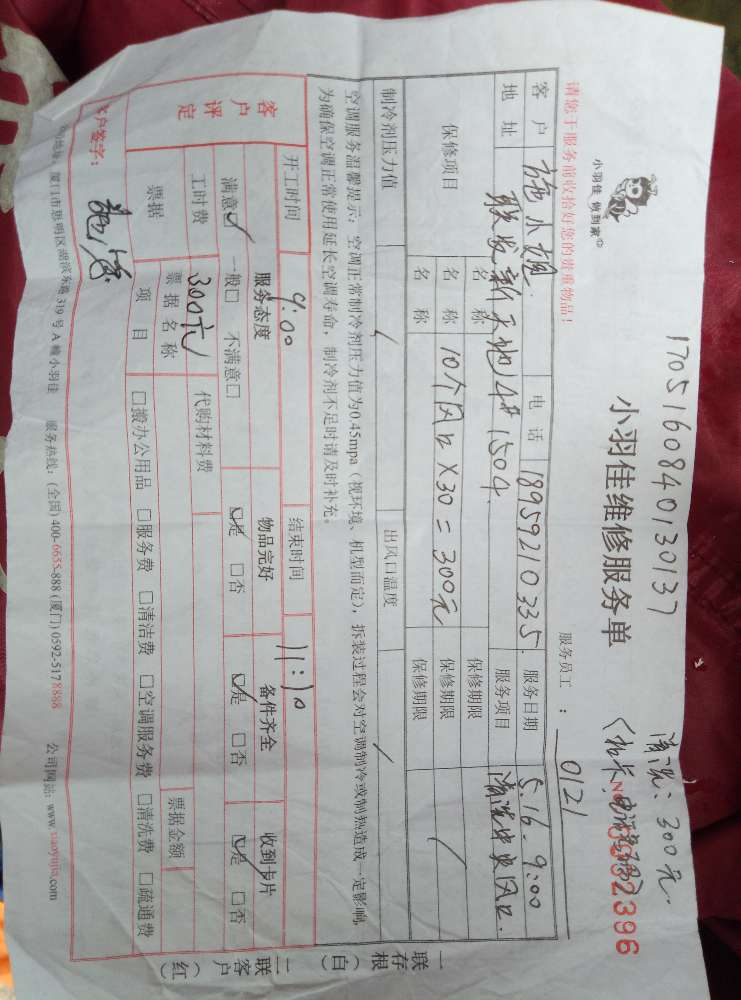 1705160840130137
清洗：300元.
小羽佳 做到家
小羽佳维修服务单
请您于服务前收拾好您的贵重物品！
服务员工：0121
客户 施小姐. 电话 18959210335. 服务日期 5.16. 9:00
地址 联发新天地4#1504. 服务项目 清洗中央风口.
保修项目 名称 保修期限
名称 10个风口×30=300元 保修期限
名称 保修期限
制冷剂压力值 出风口温度
空调服务温馨提示：空调正常制冷剂压力值为0.45mpa（视环境、机型而定），拆装过程会对空调制冷或制热造成一定影响，
为确保空调正常使用延长空调寿命，制冷剂不足时请及时补充。
开工时间 9:00 结束时间 11:10
客户评定 服务态度 物品完好 备件齐全 收到卡片
满意☑ 一般□ 不满意□ ☑是 □否 ☑是 □否 ☑是 □否
工时费 300元 代购材料费
票据 票据名称 票据金额
项目 □搬办公用品 □服务费 □清洁费 □空调服务费 □清洗费 □疏通费
客户签字：
地址：厦门市思明区湖滨东路319号A幢小羽佳 服务热线：(全国) 400-6655-888 (厦门) 0592-5178888 公司网站：www.xiaoyujia.com
一联存根（白）
二联客户（红）